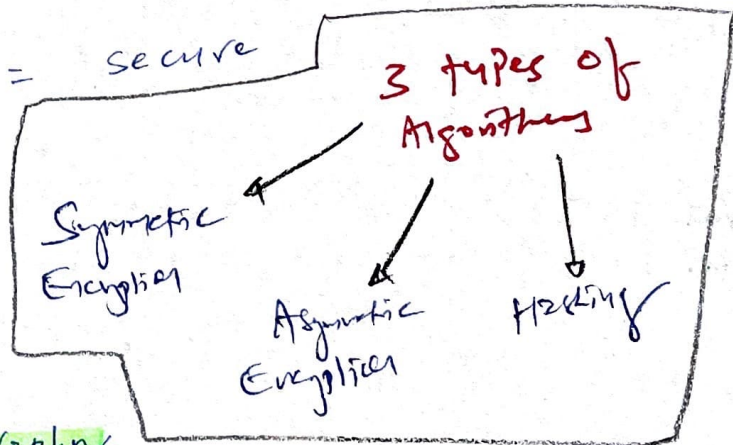 = secure
3 types of
Algorithms
Symmetric
Encryption
Asymmetric
Encryption
Hashing